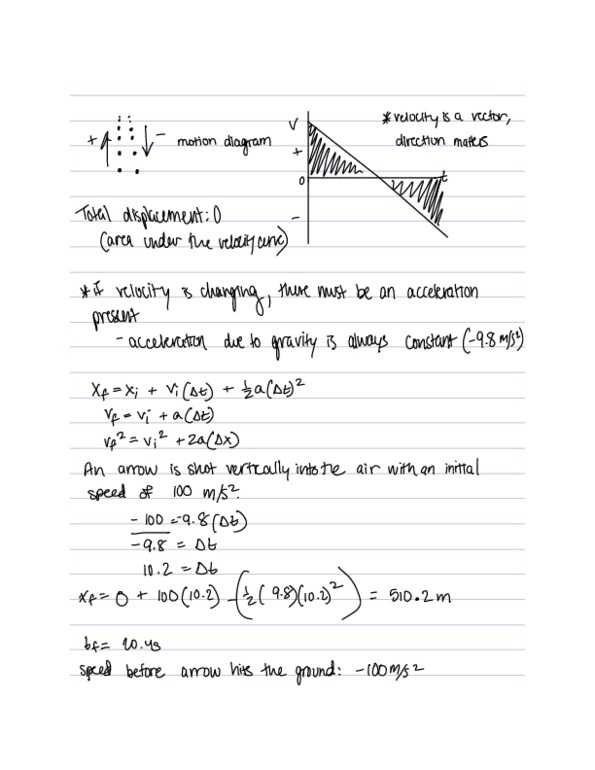 V
+
0
−
t
* velocity is a vector,
direction maters
+ − motion diagram
Total displacement: 0
(area under the velocity curve)
* If velocity is changing, there must be an acceleration
present
- acceleration due to gravity is always constant (-9.8 m/s²)
Xf = Xi + Vi(Δt) + ½a(Δt)²
Vf = Vi + a(Δt)
Vf² = Vi² + 2a(Δx)
An arrow is shot vertically into the air with an initial
speed of 100 m/s².
-100 = -9.8(Δt)
-9.8 = Δt
10.2 = Δt
Xf = 0 + 100(10.2) - (½(9.8)(10.2)²) = 510.2 m
tf = 20.4s
speed before arrow hits the ground: -100 m/s²